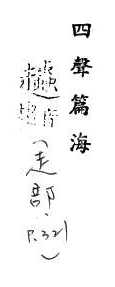 四聲篇海
(走部, P.321)